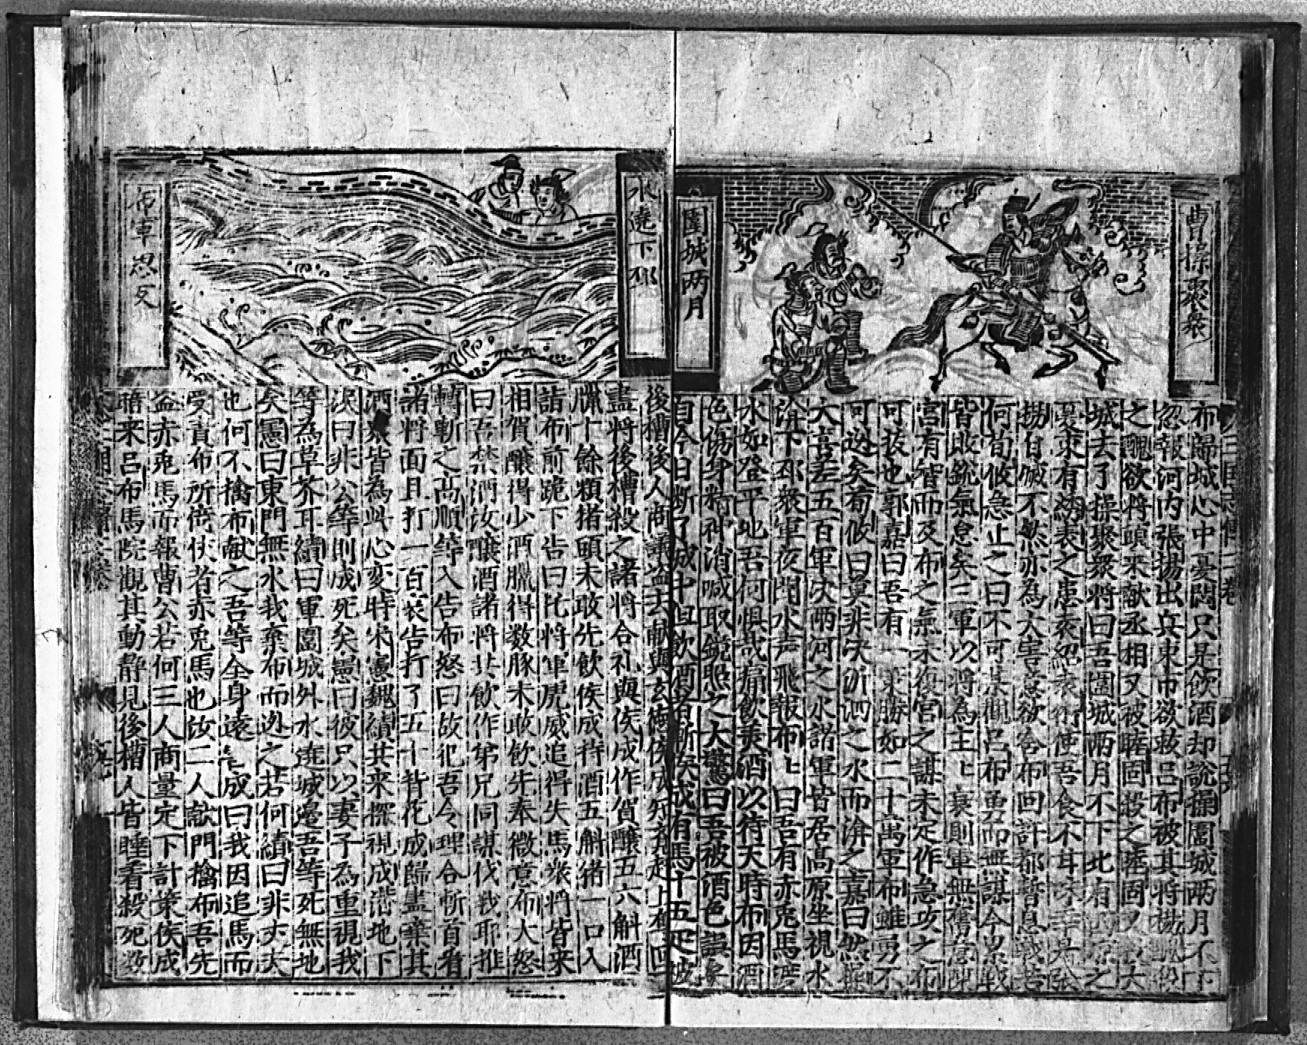 曹操聚衆
圍城两月
布歸城心中憂悶只是飲酒却說操圍城两月不下
忽報河内張揚出兵東市欲救吕布被其將楊醜殺
之醜欲將頭來献丞相又被眭固殺之眭固又
城去了操聚衆將曰吾圍城两月不下北有
夏東有綉表之患
楊自滅不然亦為大害意欲舍布回計都暫息
何荀攸急止之曰不可某觀吕布勇而無謀今累戰
皆敗銳氣怠矣三軍以將為主上衰則軍無奮意陳
宫有智而及布之氣未復宫之謀未定作急攻之布
可拔也郭嘉曰吾有一 勝如二十萬軍布雖勇不
可逃矣荀攸曰莫非决沂泗之水而渰之嘉曰然操
大喜差五百軍决两河之水諸軍皆居高原坐視水
渰下邳衆軍夜聞水声飛報布上曰吾有赤兎馬渡
水如登平地吾何惧哉痛飲羙酒以待天時布因酒
色傷身精神消减取鏡照之大驚曰吾被酒色誤矣
自今日断了城中但飲酒者斬侯成有馬十五疋被
水遶下邳
後槽後人商議盗去献與玄德侯成
盡將後槽殺之諸將合礼與侯成作賀釀五六斛酒
臘十餘頼猪頭未敢先飲侯成持酒五斛猪一口入
詣布前跪下告曰托將軍虎威追得失馬衆將皆來
相賀釀得少酒臘得数豚未敢飲先奉微意布大怒
曰吾禁酒汝釀酒諸將共飲作弟兄同謀伐我耶推
轉斬之高順等入告布怒曰故犯吾令理合斬首看
諸將面且打一百衆告打了五十背花成歸盡棄其
酒衆皆為此心变時宋憲魏續其来探視成滞地下
淚曰非公等則成死矣憲曰彼只以妻子為重視我
等為草芥耳續曰軍圍城外水遶城邉吾等死無地
矣憲曰東門無水我棄布而逃之若何續曰非丈夫
也何不擒布献之吾等全身遠 成曰我因追馬而
受責布所倚仗者赤兎馬也汝二人献門擒布吾先
盗赤兎馬而報曹公若何三人商量定下計策侯成
暗来吕布馬院觀其動静見後槽人皆睡着殺死数